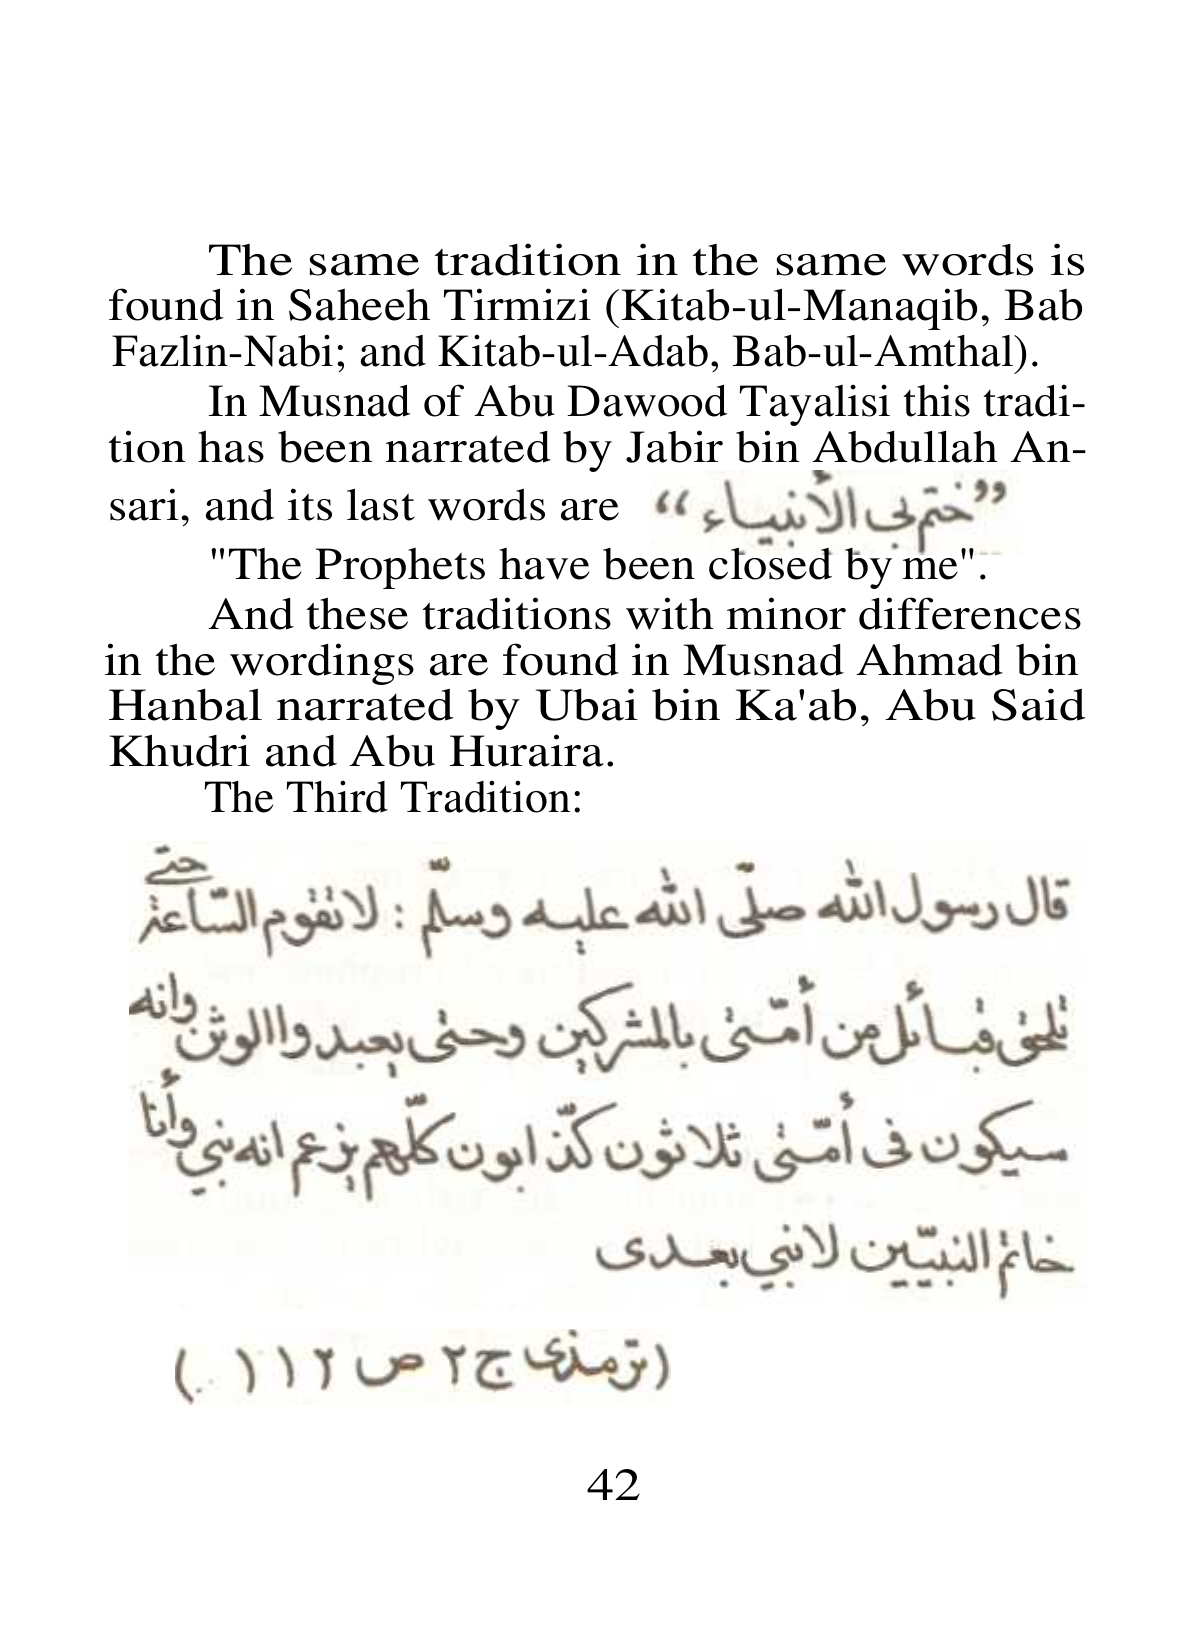 The same tradition in the same words is
found in Saheeh Tirmizi (Kitab-ul-Manaqib, Bab
Fazlin-Nabi; and Kitab-ul-Adab, Bab-ul-Amthal).
In Musnad of Abu Dawood Tayalisi this tradi-
tion has been narrated by Jabir bin Abdullah An-
sari, and its last words are ”ختم بی الأنبیاء“
"The Prophets have been closed by me".
And these traditions with minor differences
in the wordings are found in Musnad Ahmad bin
Hanbal narrated by Ubai bin Ka'ab, Abu Said
Khudri and Abu Huraira.
The Third Tradition:
قال رسول الله صلّى الله عليه وسلّم : لا تقوم السّاعة حتى
تلحق قبائل من أمّتى بالمشركين وحتى يعبدوا الوثن وانه
سيكون فى أمّتى ثلاثون كذّابون كلّهم يزعم انه نبي وأنا
خاتم النبيّين لا نبي بعدى
(ترمذى ج ٢ ص ١١٢)
42